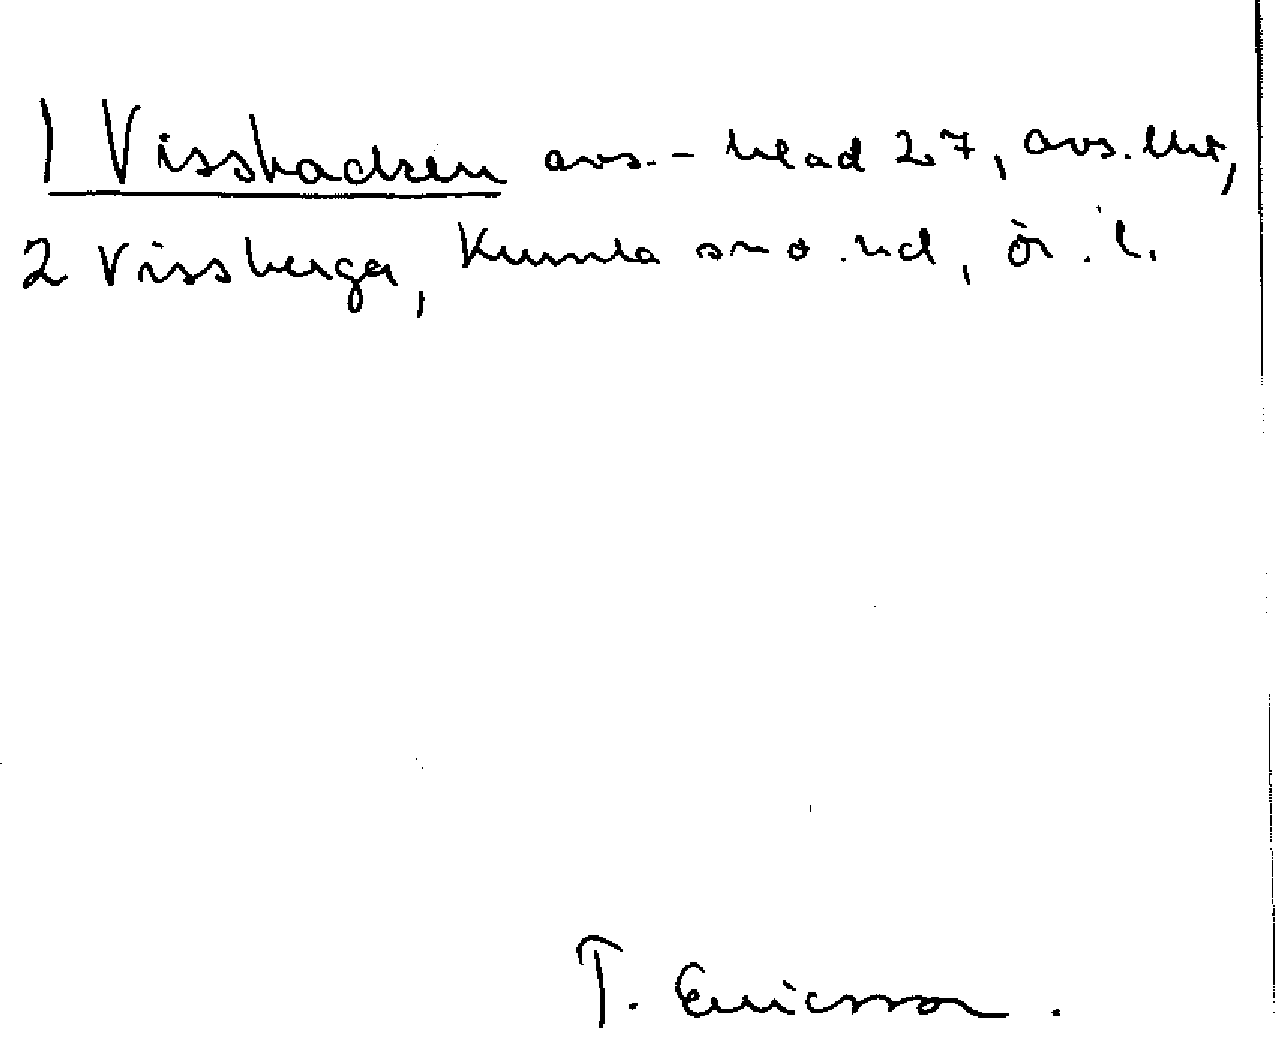 1 Vissbacken avs.- blad 27, avs.
2 Vissberga, Kumla sn o. hd, ör. l.
T. Ericsson.